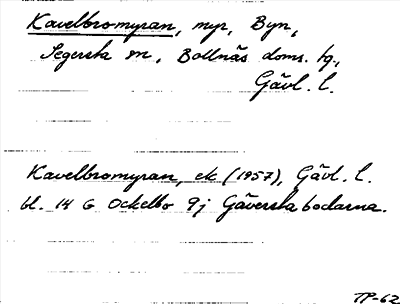 Kavelbromyran, myr, Byn,
Segersta sn, Bollnäs doms. hg.,
Gävl. l.
Kavelbromyran, ek (1957), Gävl. l.
bl. 14 G Ockelbo 9j Gäverstabodarna.
TP-62